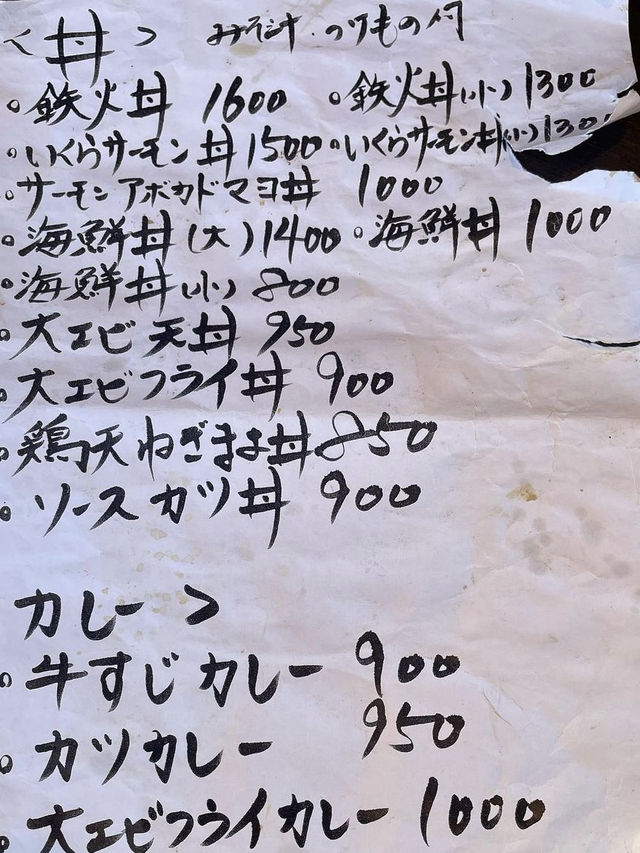 <丼> みそ汁.つけもの付
。鉄火丼 1600 。鉄火丼(小)1300
。いくらサーモン丼1500 。いくらサーモン丼(小)1300
。サーモンアボカドマヨ丼 1000
。海鮮丼(大)1400 。海鮮丼 1000
。海鮮丼(小) 800
。大エビ天丼 950
。大エビフライ丼 900
。鶏天ねぎまよ丼 850
。ソースカツ丼 900
カレー >
。牛すじカレー 900
。カツカレー 950
。大エビフライカレー 1000